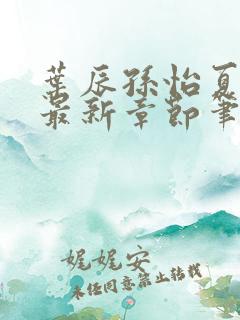 叶辰孙怡夏
最新章节笔
娓娓安
未经同意禁止转载